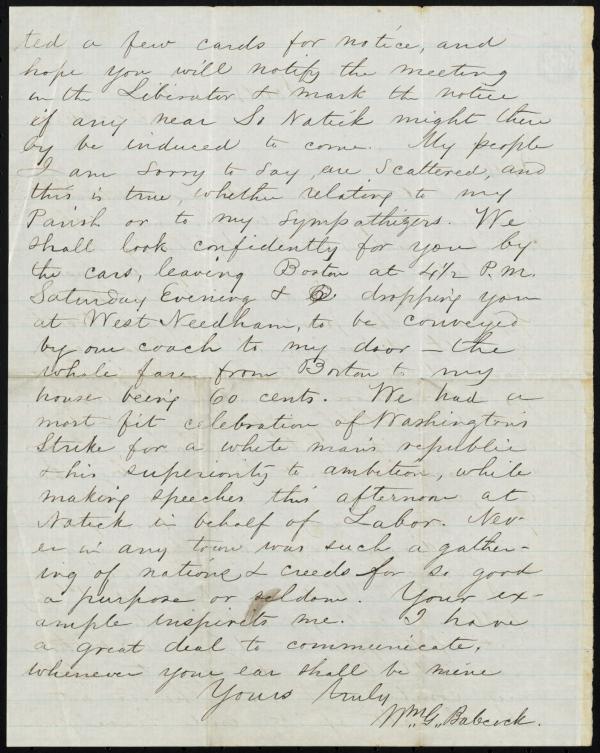 ted a few cards for notice, and
hope you will notify the meeting
in the Liberator & mark the notice
if any near So Natick might there
by be induced to come. My people
I am sorry to say, are scattered, and
this is true, whether relating to my
Parish or to my sympathizers. We
shall look confidently for you by
the cars, leaving Boston at 4 1/2 P.M.
Saturday Evening & dropping you
at West Needham, to be conveyed
by our coach to my door — the
whole fare from Boston to my
house being 60 cents. We had a
most fit celebration of Washington's
Strike for a white man's republic
& his superiority to ambition, while
making speeches this afternoon at
Natick in behalf of Labor. Nev-
er in any town was such a gather-
ing of nations & creeds for so good
a purpose or seldom. Your ex-
ample inspirits me. I have
a great deal to communicate,
whenever your ear shall be mine
Yours truly
Wm. G. Babcock.